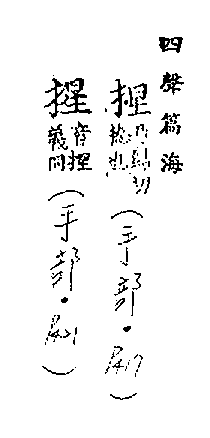 四聲篇海
捏 乃結切 捻也 (手部．
音捏 義同 (手部．